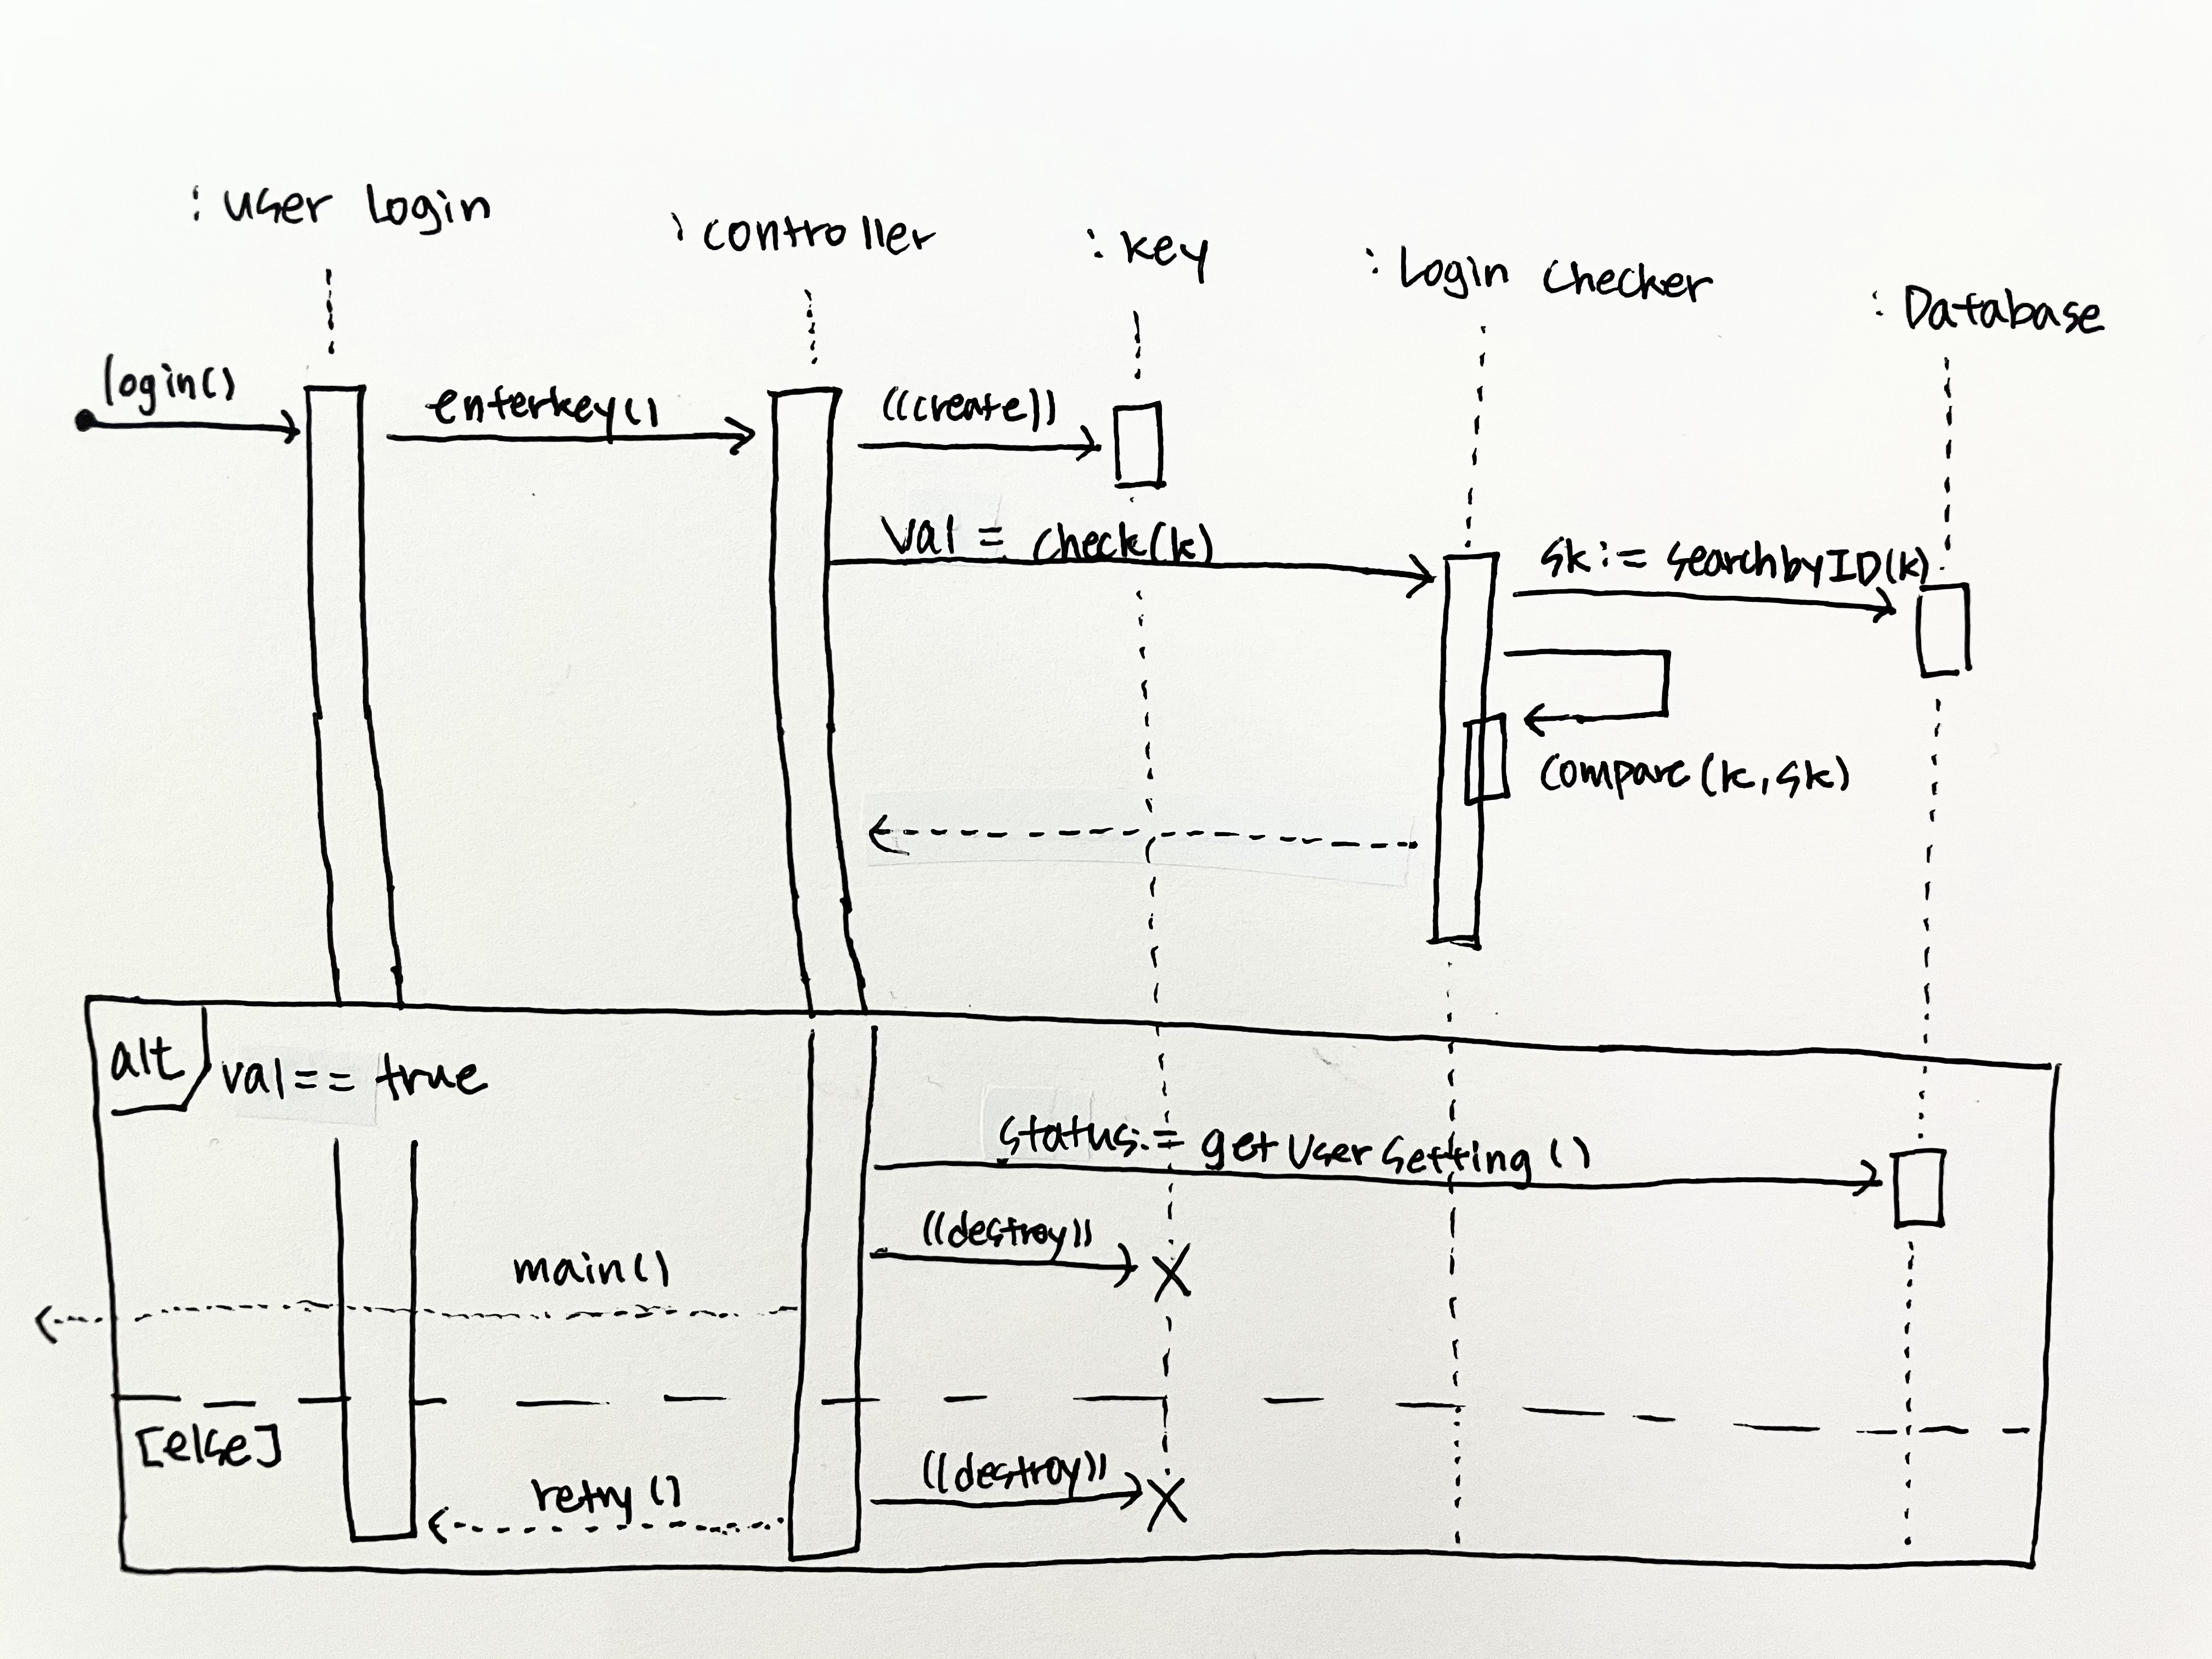 : user Login
: controller
: key
: Login checker
: Database
login()
enterkey()
((create))
val = check(k)
sk := searchbyID(k)
compare(k, sk)
alt
val == true
status := getUserSetting()
((destroy))
main()
[else]
((destroy))
retry()